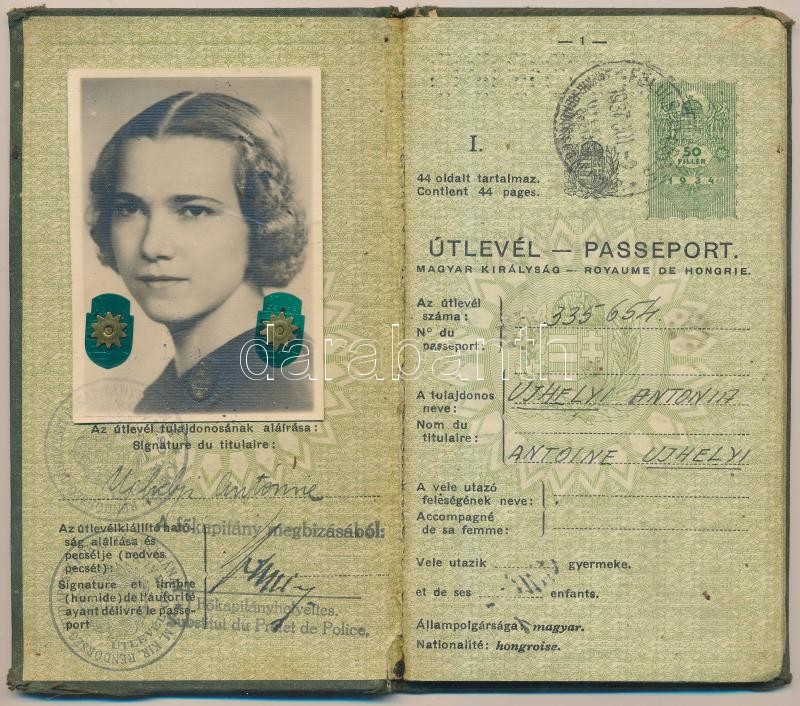 Az útlevél tulajdonosának aláírása:
Signature du titulaire:
Ujhelyi Antonne
Az útlevélkiállító ható-
ság aláírása és
pecsétje (nedves
pecsét):
Signature et timbre
(humide) de l'autorité
ayant délivré le passe-
port
főkapitány megbizásából:
Főkapitányhelyettes.
Substitut du Préfet de Police.
M. KIR. RENDŐRSÉG
— 1 —
1937
50
FILLÉR
1934
I.
44 oldalt tartalmaz.
Contient 44 pages.
ÚTLEVÉL — PASSEPORT.
MAGYAR KIRÁLYSÁG — ROYAUME DE HONGRIE.
Az útlevél
száma:
335654.
Nº du
passeport:
A tulajdonos
neve:
UJHELYI ANTONIA
Nom du
titulaire:
ANTOINE UJHELYI
A vele utazó
feleségének neve:
Accompagné
de sa femme:
Vele utazik gyermeke.
et de ses enfants.
Állampolgársága: magyar.
Nationalité: hongroise.
darabanth